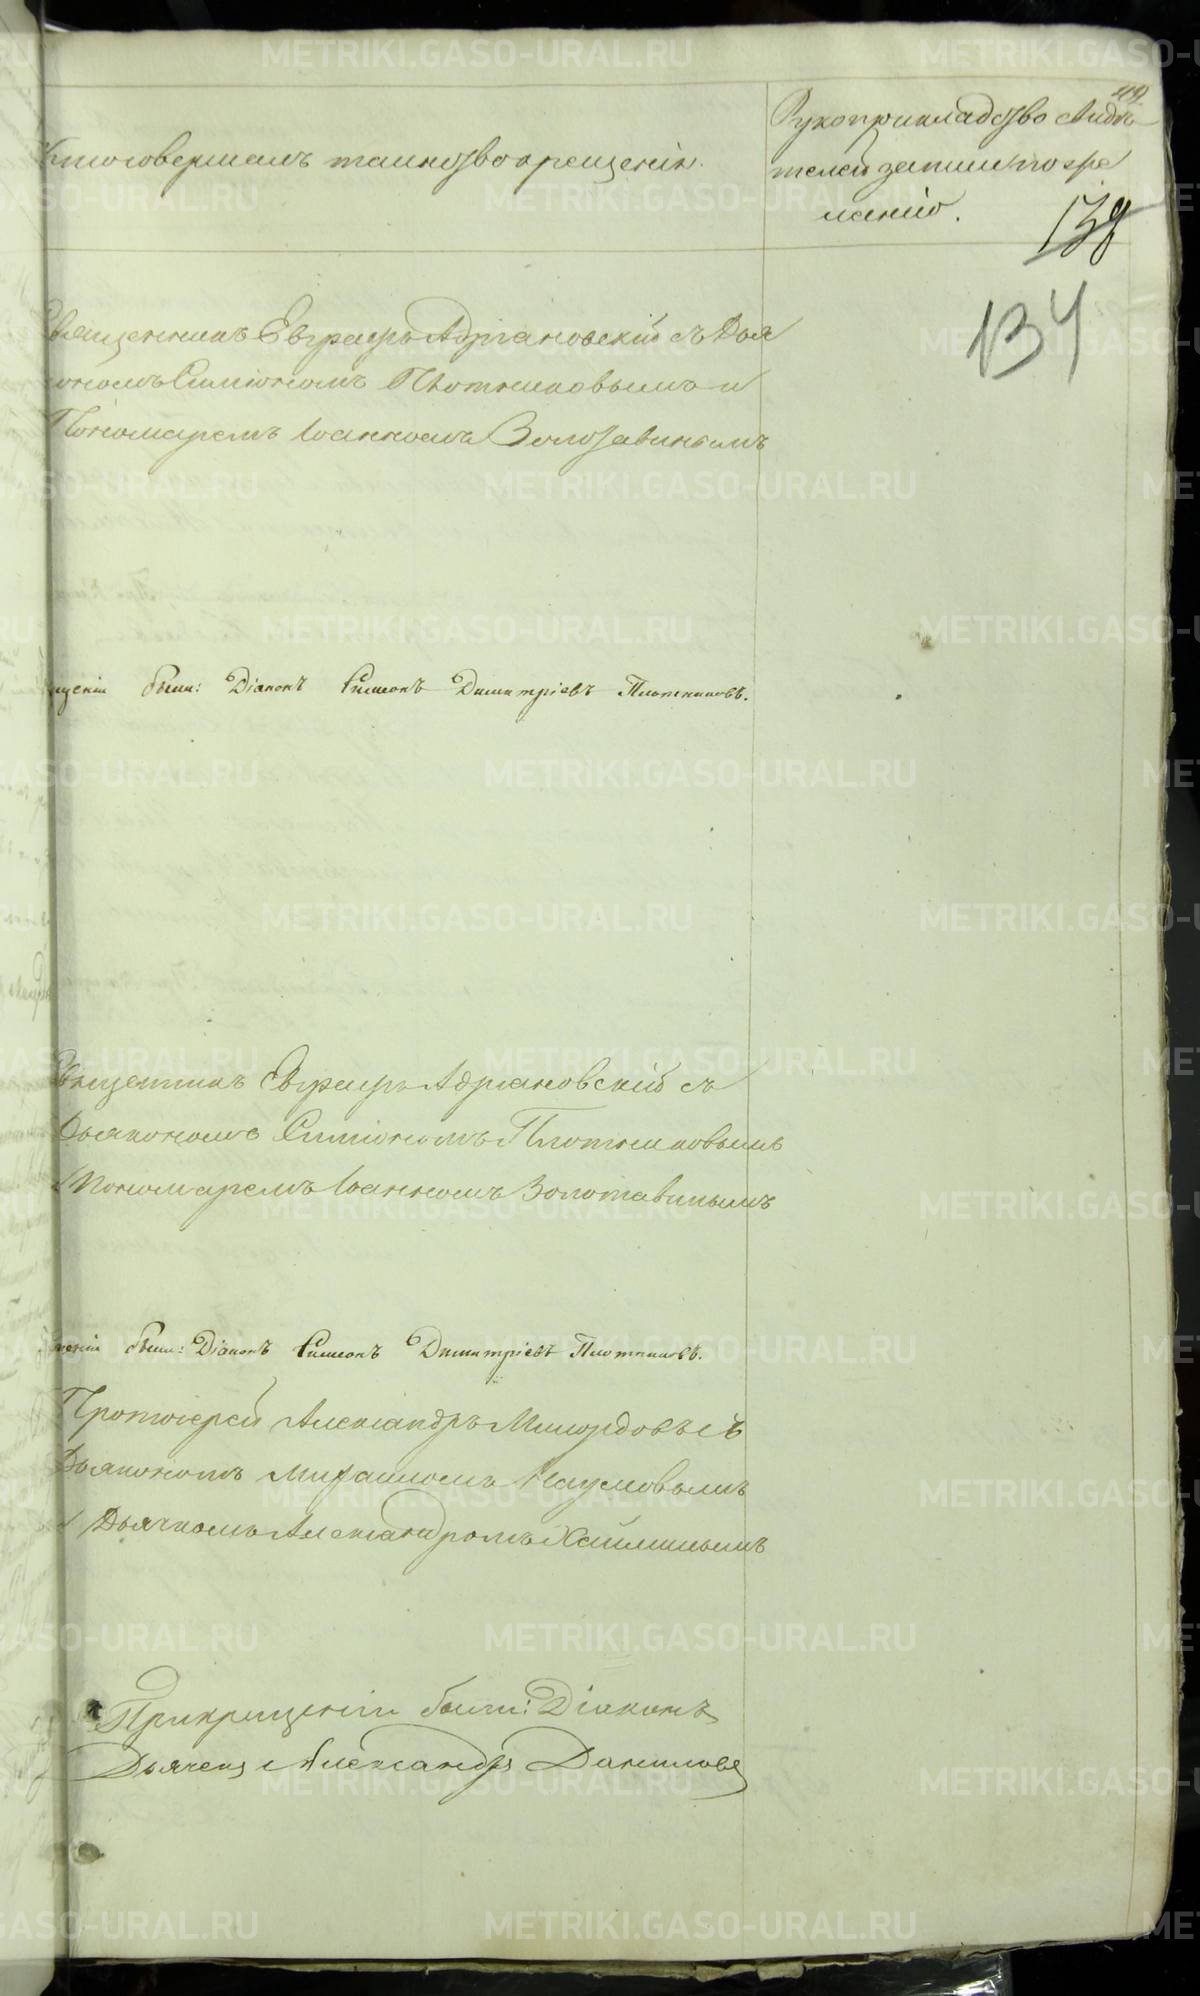 Кто совершалъ таинство крещенія.
Рукоприкладство свидѣ
телей записи по же
ланію.
138
134
Священникъ Евграфъ Адріановскій съ Дья
кономъ Симіономъ Плотниковымъ и
Пономаремъ Іоанномъ Золотавинымъ
щеніи были: Діаконъ Симеонъ Димитріевъ Плотниковъ.
Священникъ Евграфъ Адріановскій съ
Дьякономъ Симіономъ Плотниковымъ
и Пономаремъ Іоанномъ Золотавинымъ
щеніи были: Діаконъ Симеонъ Димитріевъ Плотниковъ.
Протоіерей Александръ Милордовъ съ
Дьякономъ Михаиломъ Наумовымъ
и Дьячкомъ Александромъ
При крещеніи были: Діаконъ
Дьячекъ Александръ Даниловъ
METRIKI.GASO-URAL.RU